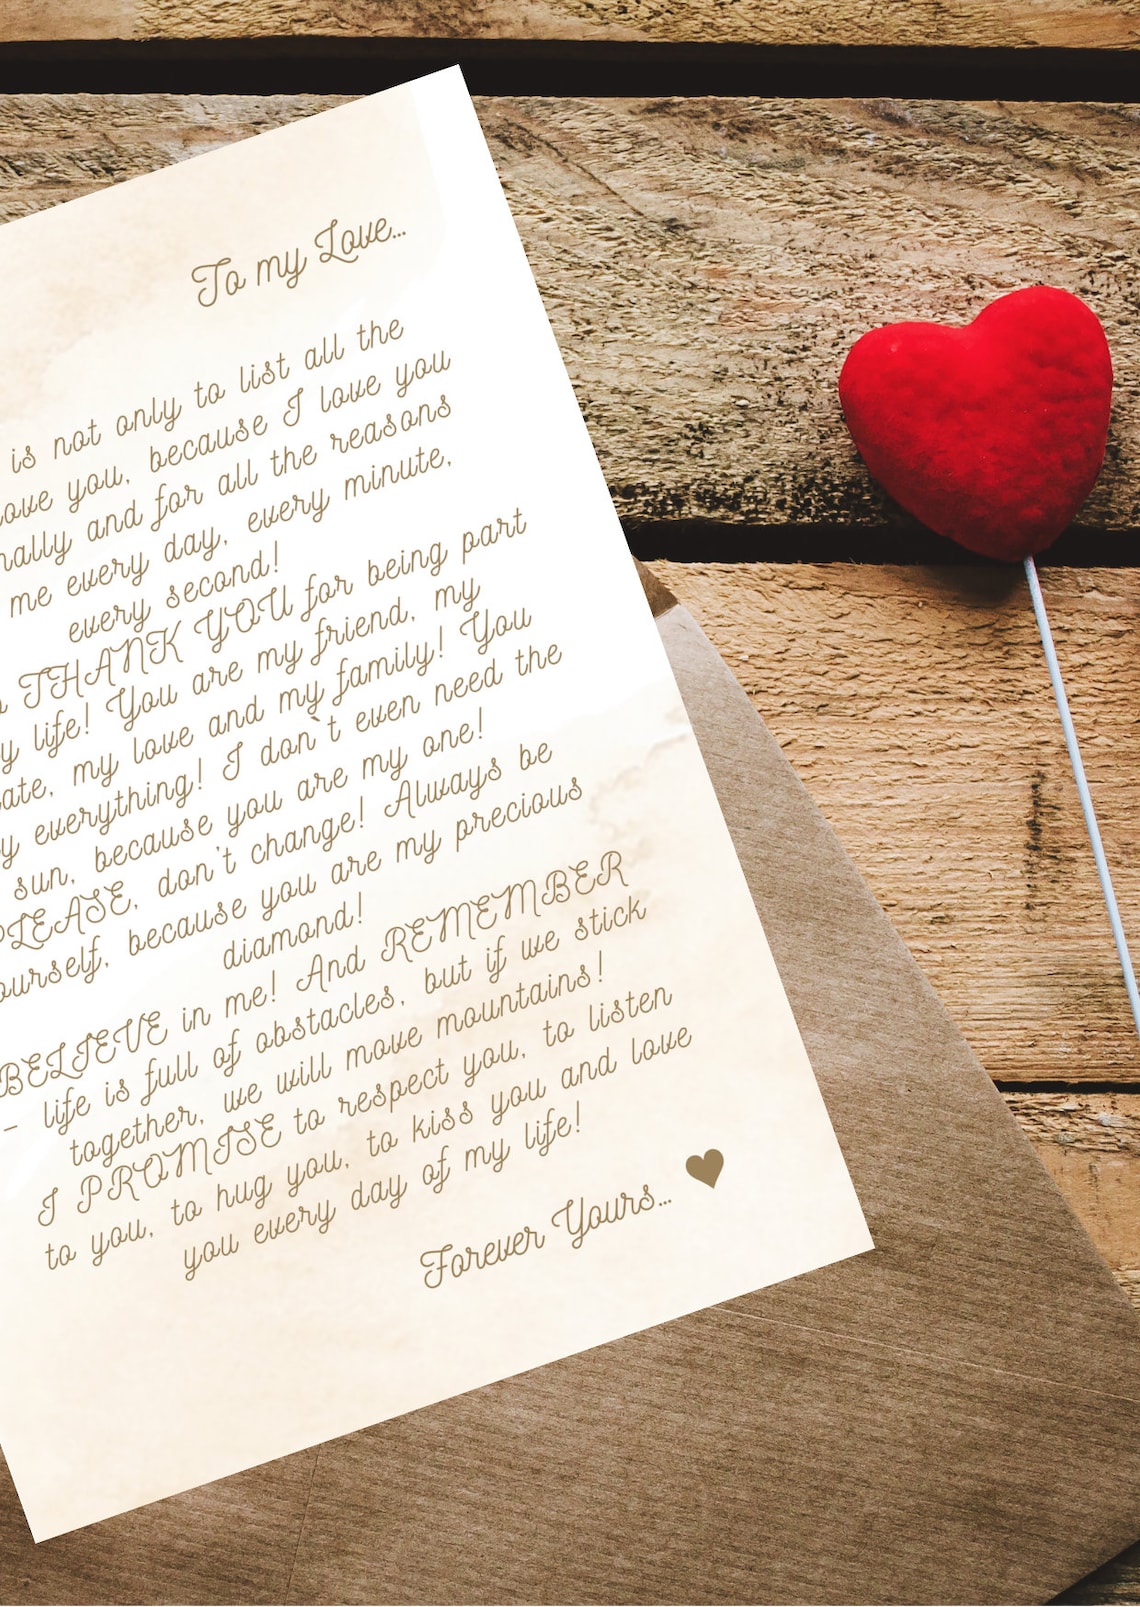 To my Love...
is not only to list all the
love you, because I love you
and for all the reasons
me every day, every minute,
every second!
THANK YOU for being part
life! You are my friend, my
my love and my family! You
everything! I don`t even need the
sun, because you are my one!
PLEASE, don't change! Always be
yourself, because you are my precious
diamond!
BELIEVE in me! And REMEMBER
- life is full of obstacles, but if we stick
together, we will move mountains!
I PROMISE to respect you, to listen
to you, to hug you, to kiss you and love
you every day of my life!
Forever Yours...